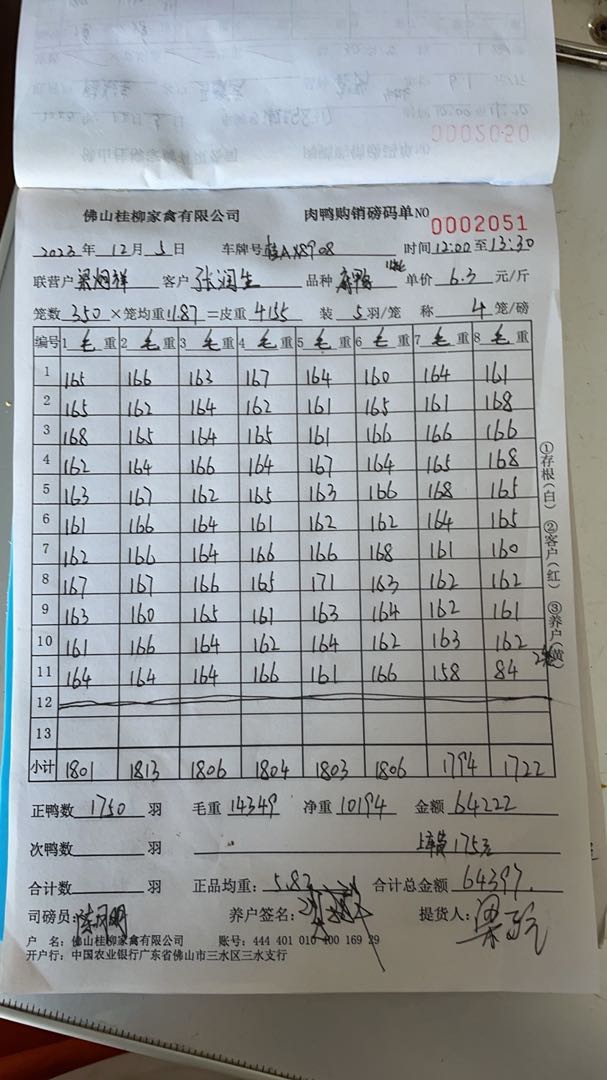 0002050
佛山桂柳家禽有限公司 肉鸭购销磅码单 NO 0002051
2023年 12月 5日 车牌号 桂AX8908 时间 12:00至13:30
联营户 梁炯祥 客户 张润生 品种 单价 6.3 元/斤
笼数 350 ×笼均重 11.87 =皮重 4155 装 5 羽/笼 称 4 笼/磅
编号 1 毛 重 2 毛 重 3 毛 重 4 毛 重 5 毛 重 6 毛 重 7 毛 重 8 毛 重
1 165 166 163 167 164 160 164 161
2 165 162 164 162 161 165 161 168
3 168 165 164 165 161 166 166 166
4 162 164 166 164 167 164 165 168
5 163 167 162 165 163 166 168 165
6 161 166 164 161 162 162 164 165
7 162 166 164 166 166 168 161 160
8 167 167 166 165 171 163 162 162
9 163 160 165 161 163 164 162 161
10 161 166 164 162 164 162 163 162
11 164 164 164 166 161 166 158 84
12
13
小计 1801 1813 1806 1804 1803 1806 1794 1722
①存根(白) ②客户(红) ③养户(黄)
正鸭数 1750 羽 毛重 14349 净重 10194 金额 64222
次鸭数 羽 上车费175元
合计数 羽 正品均重: 5.82 合计总金额 64397.
司磅员: 养户签名: 提货人:
户 名: 佛山桂柳家禽有限公司 账号: 444 401 010 400 169 29
开户行: 中国农业银行广东省佛山市三水区三水支行